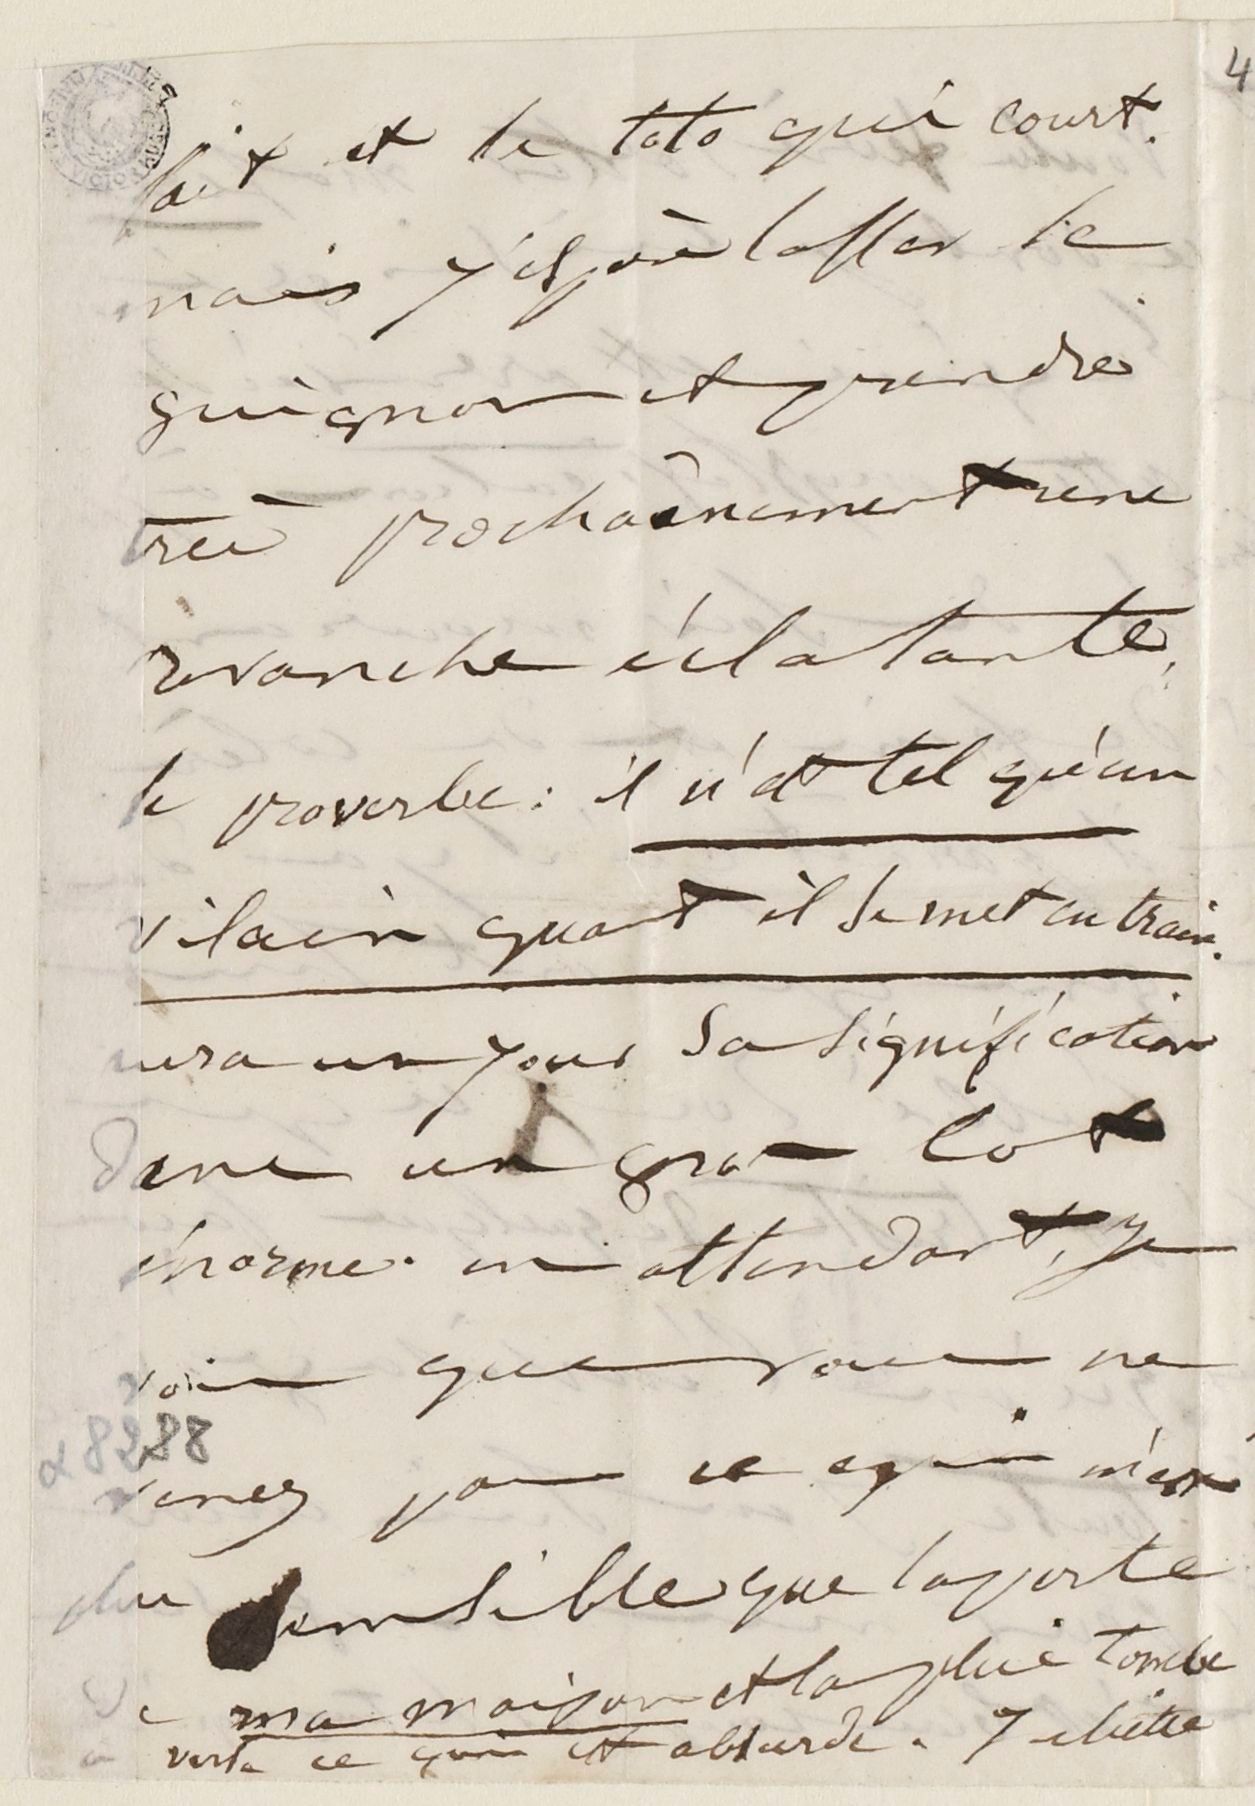 4
laix et le toto qui court.
mais j'espère lasser le
guignon et prendre
très prochainement une
revanche éclatante,
le proverbe : il n'est tel qu'un
vilain quant il se met en train.
aura un jour sa signification
dans un gros lot
énorme. en attendant, je
vois que vous ne
venez pas ce qui m'est
plus sensible que la perte
de ma maison et la pluie tombe
à verse ce qui est absurde. Juliette
α 8288